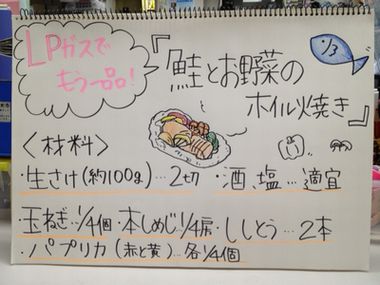 LPガスで
もう一品!
『鮭とお野菜の
ホイル焼き』
<材料>
・生さけ(約100g)…2切 ・酒、塩…適宜
・玉ねぎ…1/4個・本しめじ1/4房・ししとう…2本
・パプリカ(赤と黄)…各1/4個